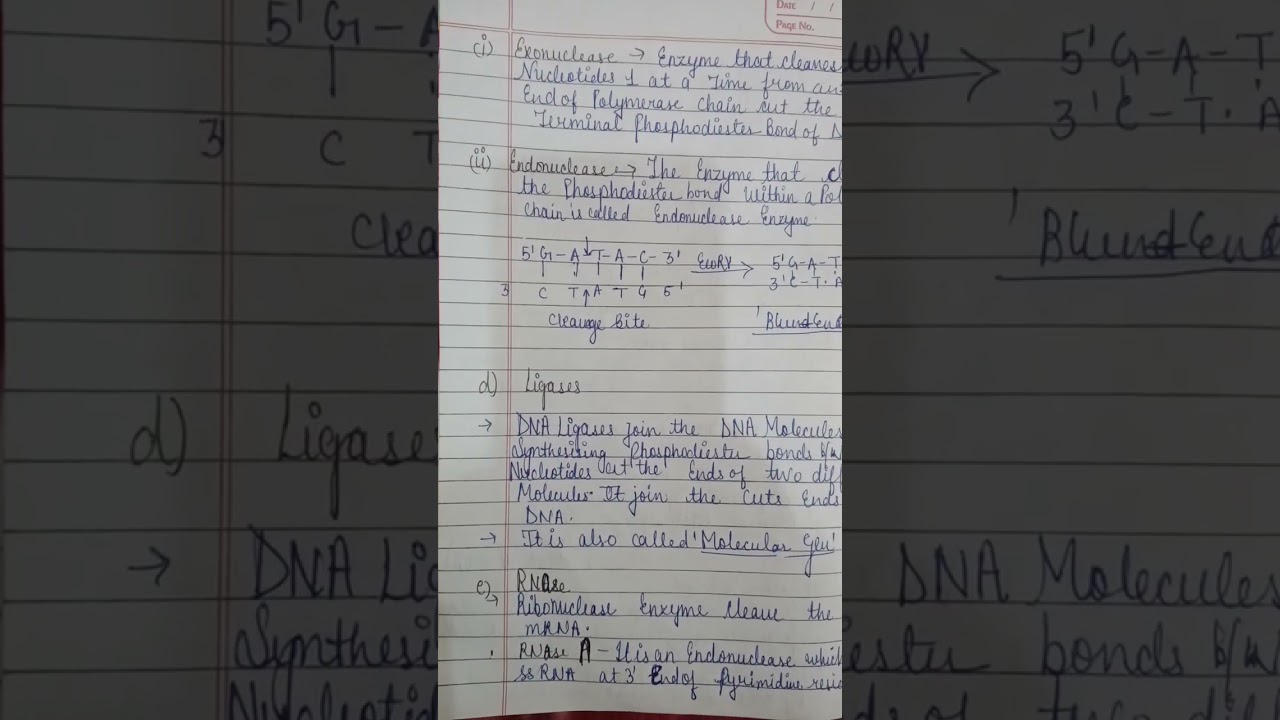 DATE / /
PAGE NO.
(i) Exonuclease → Enzyme that cleanes
Nucleotides 1 at a Time from an
End of Polymerase chain cut the
Terminal Phosphodiester Bond of D
(ii) Endonuclease → The Enzyme that cl
the Phosphodiester bond within a Pol
chain is called Endonuclease Enzyme.
5' G - A ↓ T - A - C - 3' EcoRV → 5' G - A - T
3 C T ↑ A T G 5' 3' C - T · A
Cleavage Site
d) Ligases
→ DNA Ligases join the DNA Molecules
Synthesizing Phosphodiester bonds b/w
Nucleotides at the Ends of two diff
Molecules. It join the Cuts Ends
DNA.
→ It is also called 'Molecular
e) RNase
→ Ribonuclease Enzyme cleave the
mRNA.
· RNase A - It is an Endonuclease which
ss RNA at 3' End of Pyrimidine resi